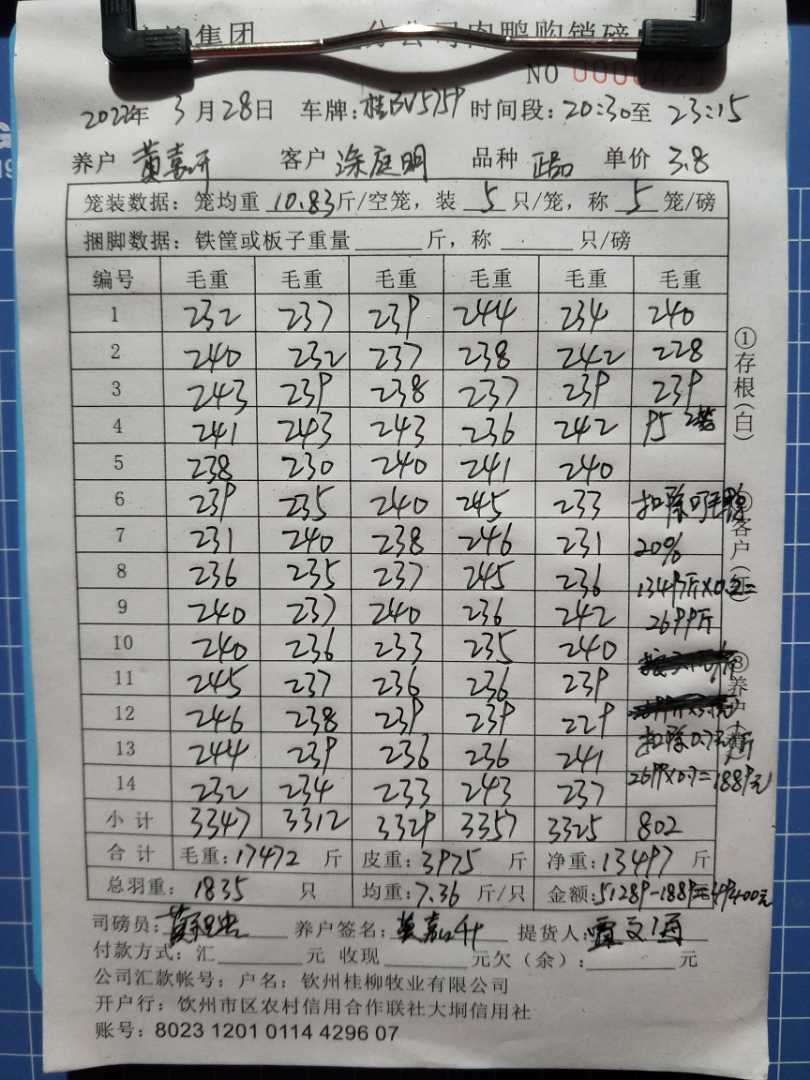 集团 分公司肉鸭购销磅
NO 0000421
2022年 3月28日 车牌:桂BV5759 时间段:20:30至 23:15
养户 黄嘉升 客户 涂庭明 品种 正品 单价 3.8
笼装数据:笼均重 10.83 斤/空笼,装 5 只/笼,称 5 笼/磅
捆脚数据:铁筐或板子重量 斤,称 只/磅
编号 毛重 毛重 毛重 毛重 毛重 毛重
1 232 237 239 244 234 240
2 240 232 237 238 242 228
3 243 239 238 237 239 239
4 241 243 243 236 242 95 2笼
5 238 230 240 241 240
6 239 235 240 245 233 扣除 毛
7 231 240 238 246 231 20%
8 236 235 237 245 236 13497斤×0.2=
9 240 237 240 236 242 2699斤
10 240 236 233 235 240
11 245 237 236 236 239
12 246 238 239 239 229
13 244 239 236 236 241 扣除0.7元/斤
14 232 234 233 243 237 2699×0.7=1889元
小计 3347 3312 3329 3357 3325 802
合计 毛重:17472 斤 皮重:3975 斤 净重:13497 斤
总羽重: 1835 只 均重:7.36 斤/只 金额:51289-1889元=49400元
司磅员: 养户签名:黄嘉升 提货人:
付款方式:汇 元 收现 元欠(余): 元
公司汇款帐号:户名:钦州桂柳牧业有限公司
开户行:钦州市区农村信用合作联社大垌信用社
账号:8023 1201 0114 4296 07
①存根(白)
②客户
③养户